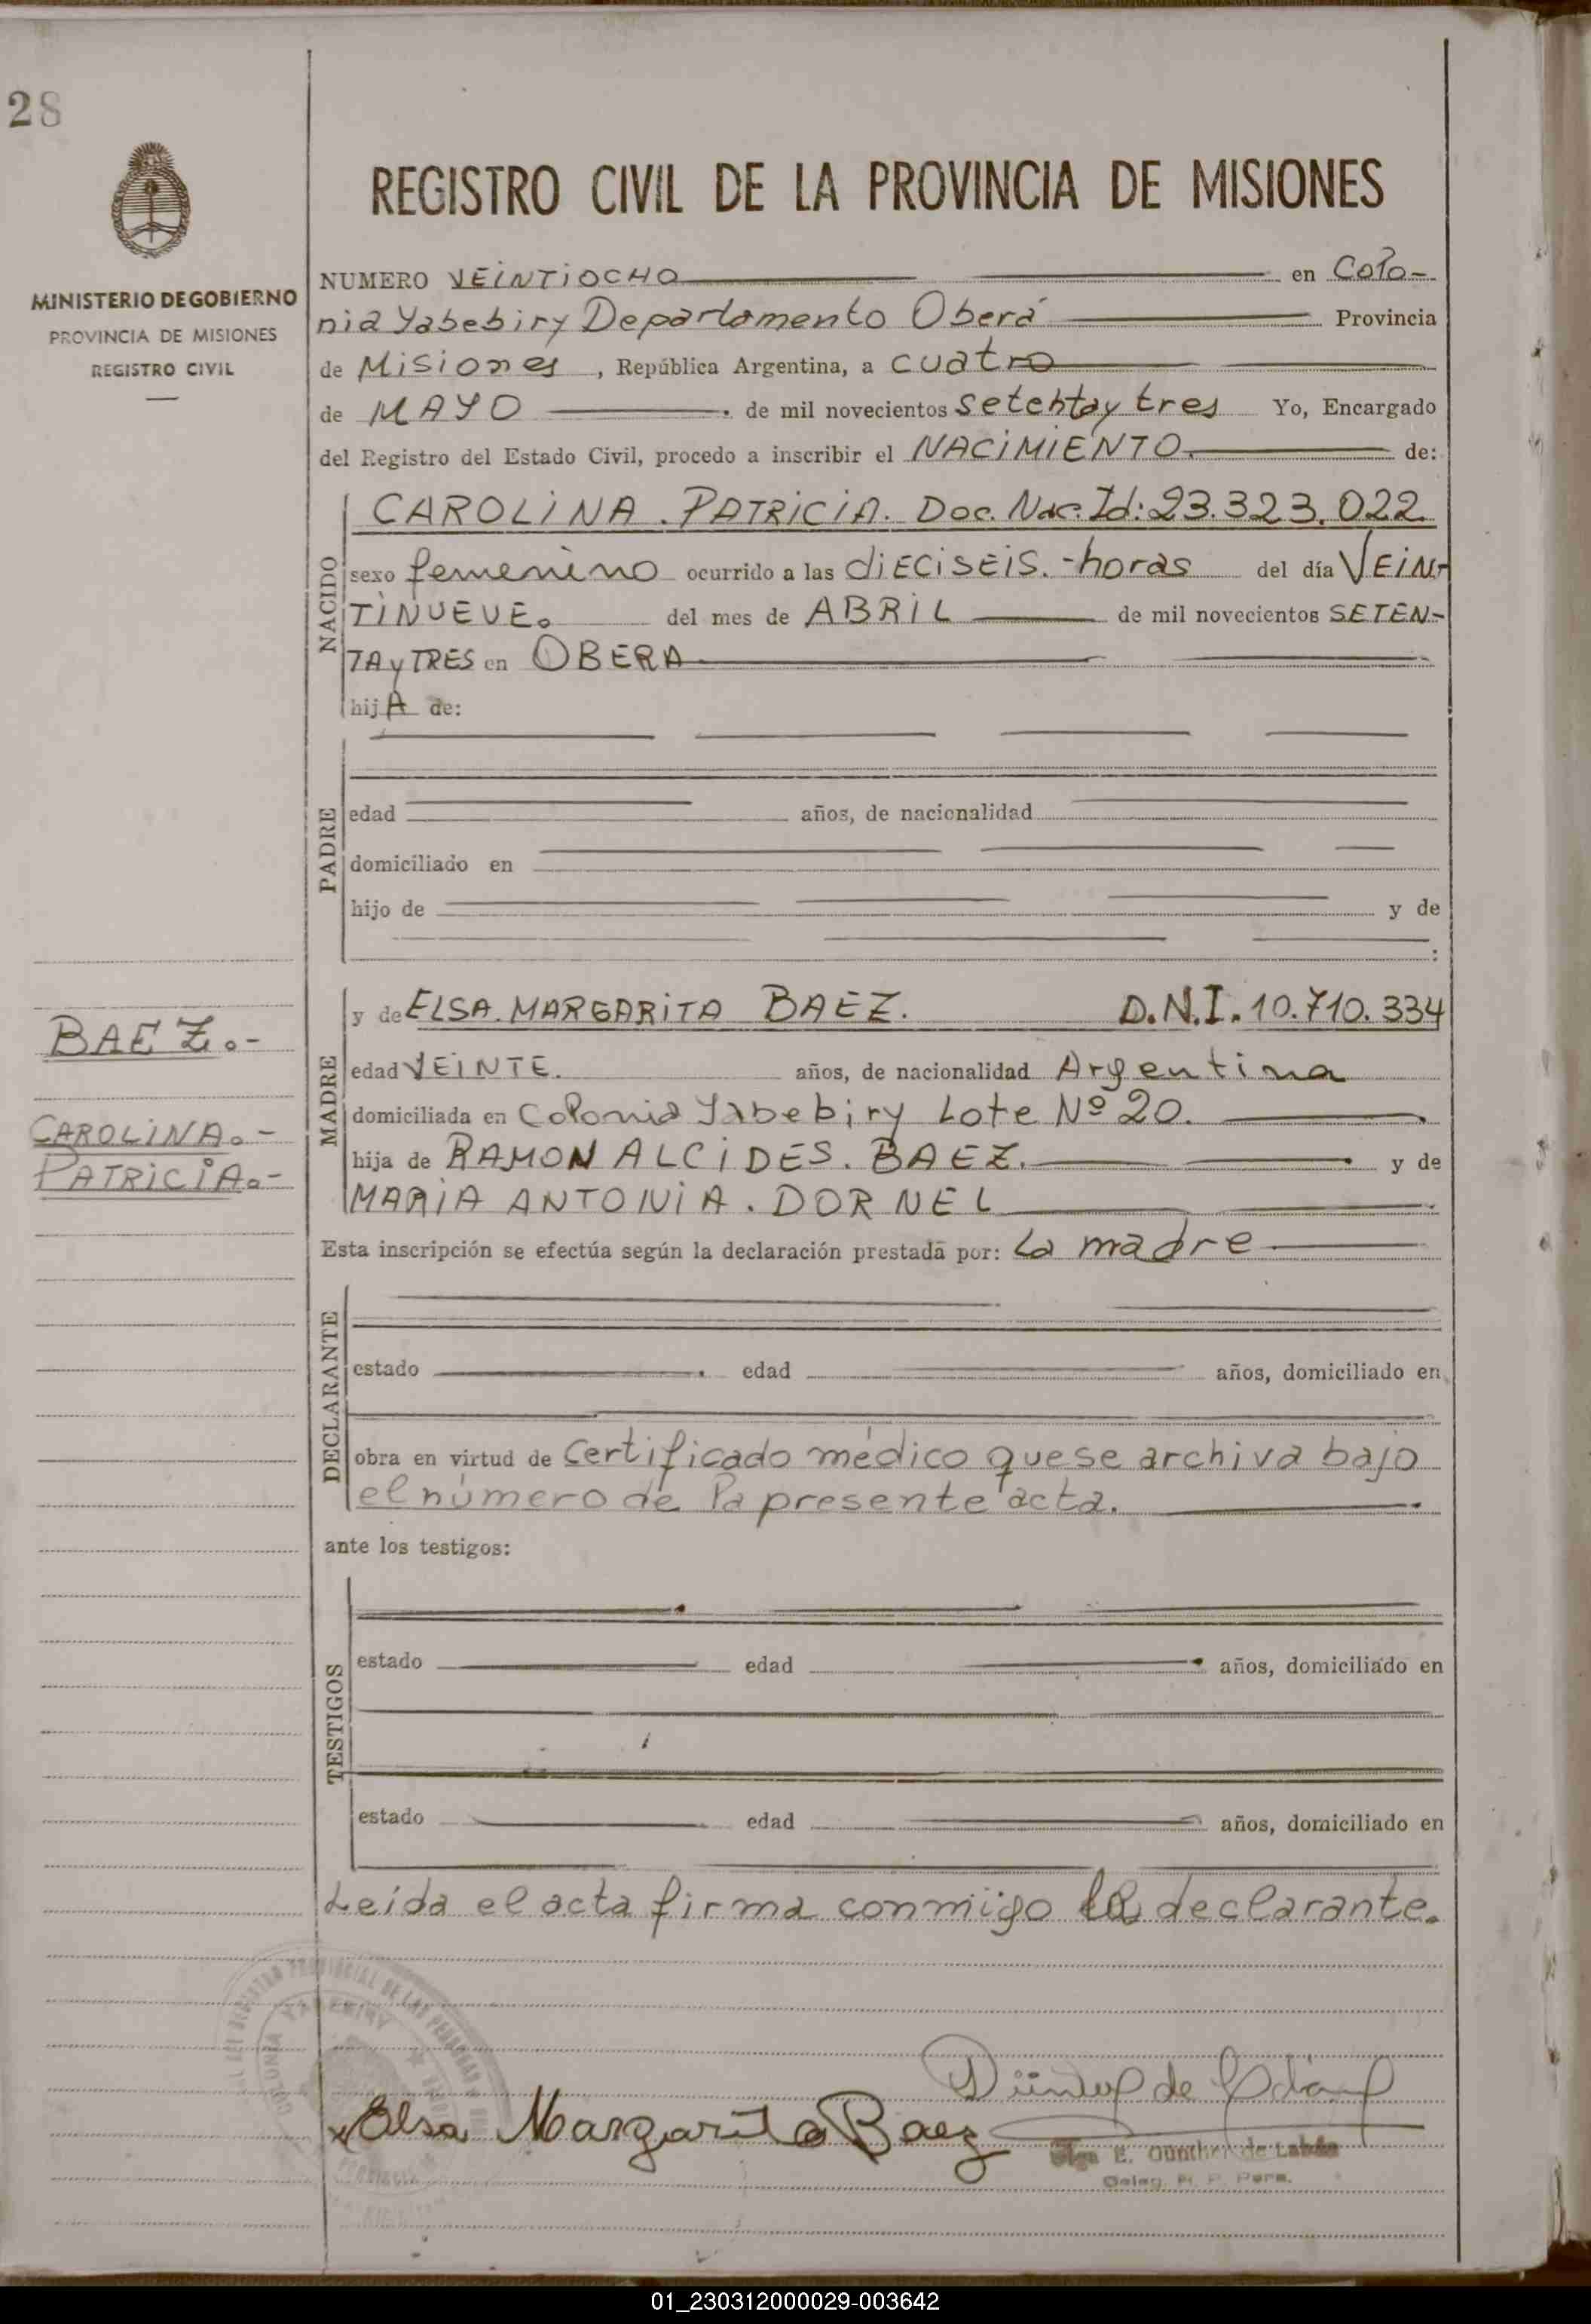 28
MINISTERIO DE GOBIERNO
PROVINCIA DE MISIONES
REGISTRO CIVIL
REGISTRO CIVIL DE LA PROVINCIA DE MISIONES
NUMERO VEiNTiOCHO en Colo-
nia Yabebiry Departamento Oberá Provincia
de Misiones, República Argentina, a cuatro
de MAYO de mil novecientos setenta y tres Yo, Encargado
del Registro del Estado Civil, procedo a inscribir el NACiMiENTO. de:
NACIDO
CAROLiNA. PATRiCiA. Doc. Nac. Id: 23.323.022
sexo femenino ocurrido a las diECiSEiS.-horas del día VEiN-
TiNUEVE. del mes de ABRiL de mil novecientos SETEN-
TA y TRES en OBERA
hijA de:
PADRE
edad años, de nacionalidad
domiciliado en
hijo de y de
:
BAEZ.-
CAROLiNA.-
PATRiCiA.-
MADRE
y de ELSA. MARGARiTA BAEZ. D.N.I. 10.710.334
edad VEiNTE. años, de nacionalidad Argentina
domiciliada en Colonia Yabebiry Lote Nº 20.
hija de RAMON ALCiDES. BAEZ. y de
MARiA ANTONiA. DORNEL
Esta inscripción se efectúa según la declaración prestada por: La madre
DECLARANTE
estado edad años, domiciliado en
obra en virtud de certificado médico que se archiva bajo
el número de la presente acta.
ante los testigos:
TESTIGOS
estado edad años, domiciliado en
estado edad años, domiciliado en
Leida el acta firma conmigo la declarante.
COLONIA YABEBIRY
Elsa Margarita Baez
Olga E. Gunther de
Deleg. R. P. Pers.
01_230312000029-003642